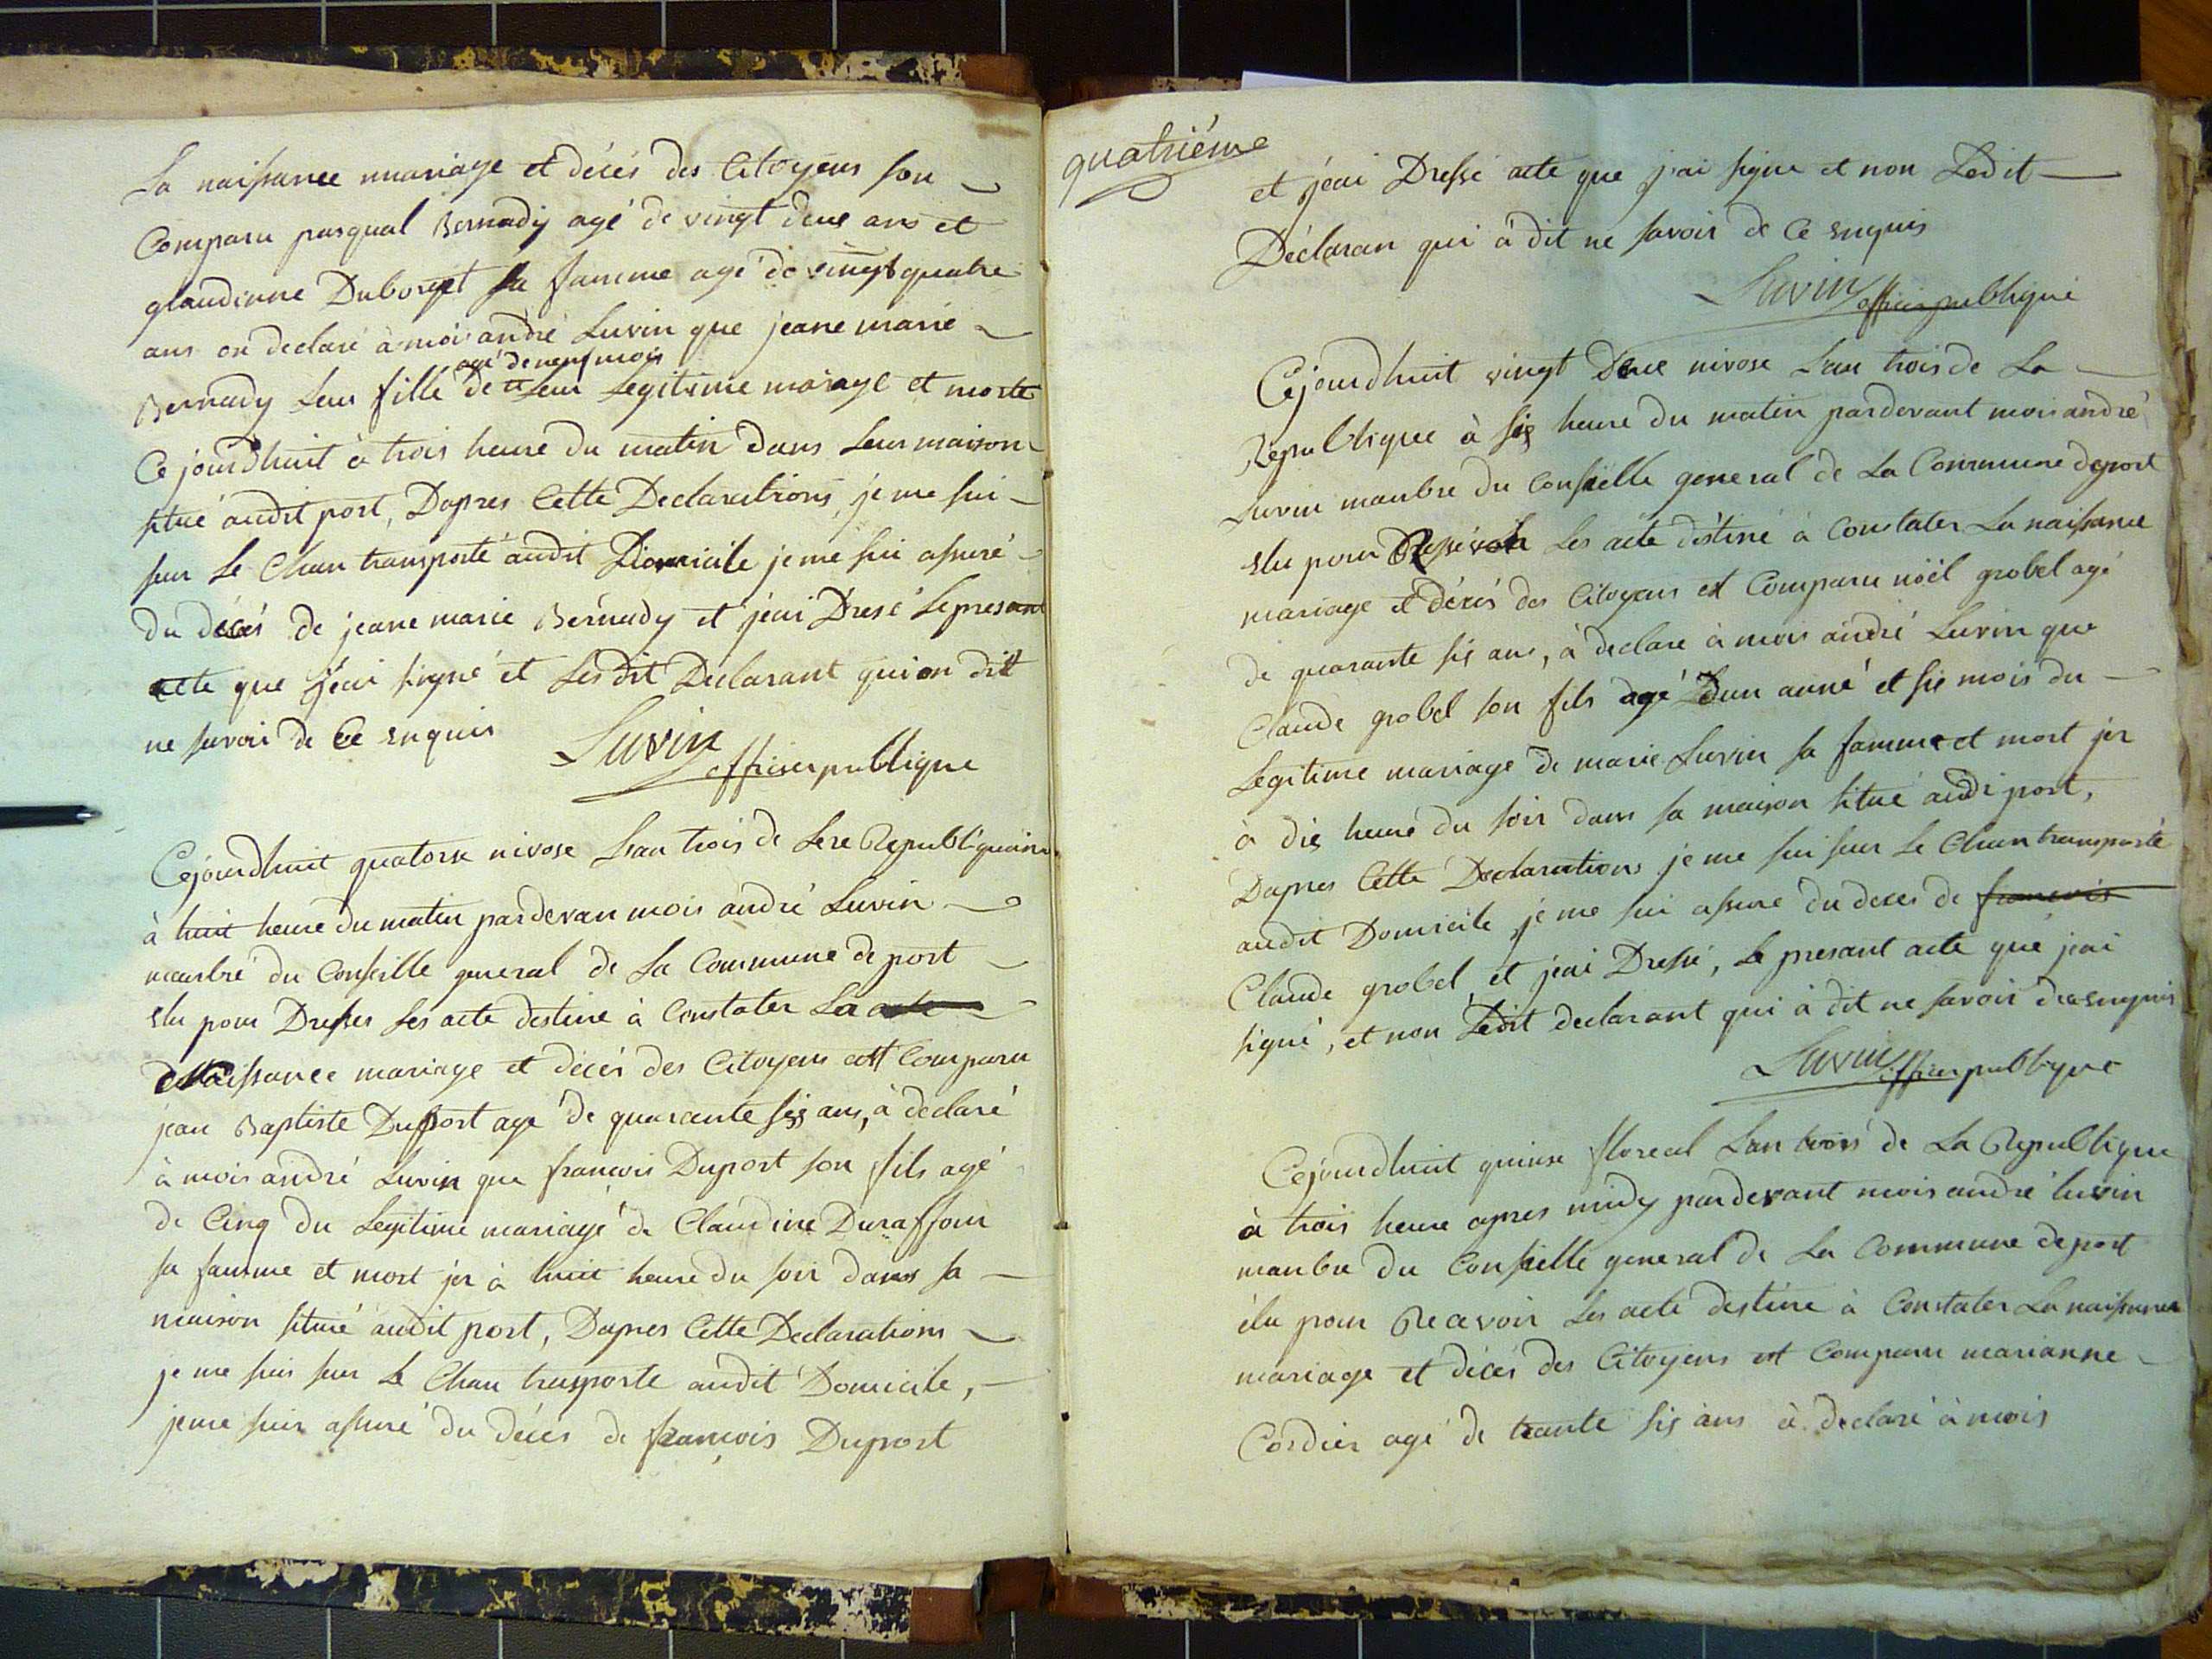 La naissance mariage et décés des Citoyens son
Comparu pasqual Bernady agé de vingt deux ans et
glaudinne Duborget sa famme agé de vingt quatre
ans on declaré à moi andré Luvin que jeane marie
agé de neuf mois
Bernady Leur fille de Leur Legitime mariage et morte
Ce jourdhuit à trois heure du matin dans Leur maison
situé audit port, Dapres Cette Declarations, je me sui
sur Le Chan transporté audit Domicile je me sui assuré
du décés de jeane marie Bernady et jéai Dresé Le presant
acte que jéai signé et Lesdit Déclarant qui on dit
ne savoir de Ce enquis
Luvin officier publique
Cejourdhuit quatorse nivose Lan trois de Lere Republiquaine
à huit heure du matin pardevan mois andré Luvin
manbré du Conseille general de La Commune de port
elu pour Dresser Les acte destine à Constater La acte
de Naissance mariage et décés des Citoyens est Comparu
jean Baptiste Duport agé de quarante six ans, à declaré
à mois andré Luvin que francois Duport son fils agé
de Cinq du Legitime mariage de Claudine Duraffour
sa famme et mort jer à huit heure du soir dans sa
maison situé audit port, Dapres Cette Declarations
je me suis sur Le Chan trasporte audit Domicile,
je me suis assuré du décés de françois Duport
quatriéme
et jéai Dressé acte que j'ai signe et non Ledit
Déclaran qui à dit ne savoir de Ce enquis
Luvin officier publique
Cejourdhuit vingt deux nivose Lan trois de La
Republique à six heure du matin pardevant mois andré
Luvin manbre du Conseille general de La Commune deport
elu pour Les acte déstiné à Constater La naissance
mariage et décés des Citoyens est Comparu nöél grobel agé
de quarante six ans, à declare à mois andré Luvin que
Claude grobel son fils agé Dun anné et six mois du
Legitime mariage de marie Luvin sa famme et mort jer
à dix heure du soir dans sa maison situé audi port,
Dapres Cette Declarations je me sui sur Le Chan transporté
audit Domicile je me sui assure du deces de francois
Claude grobel, et jéai Dressé, Le presant acte que jéai
signé, et non Ledit declarant qui à dit ne savoir de ce enquis
Luvin officier publique
Cejourdhuit quinse floreal Lan trois de La Republique
à trois heure apres midy pardevant mois andré luvin
manbre du Conseille general de La Commune deport
élu pour Recevoir Les acte destine à Constater La naissance
mariage et décés des Citoyens est Comparu marianne
Cordier agé de trante six ans à declaré à mois